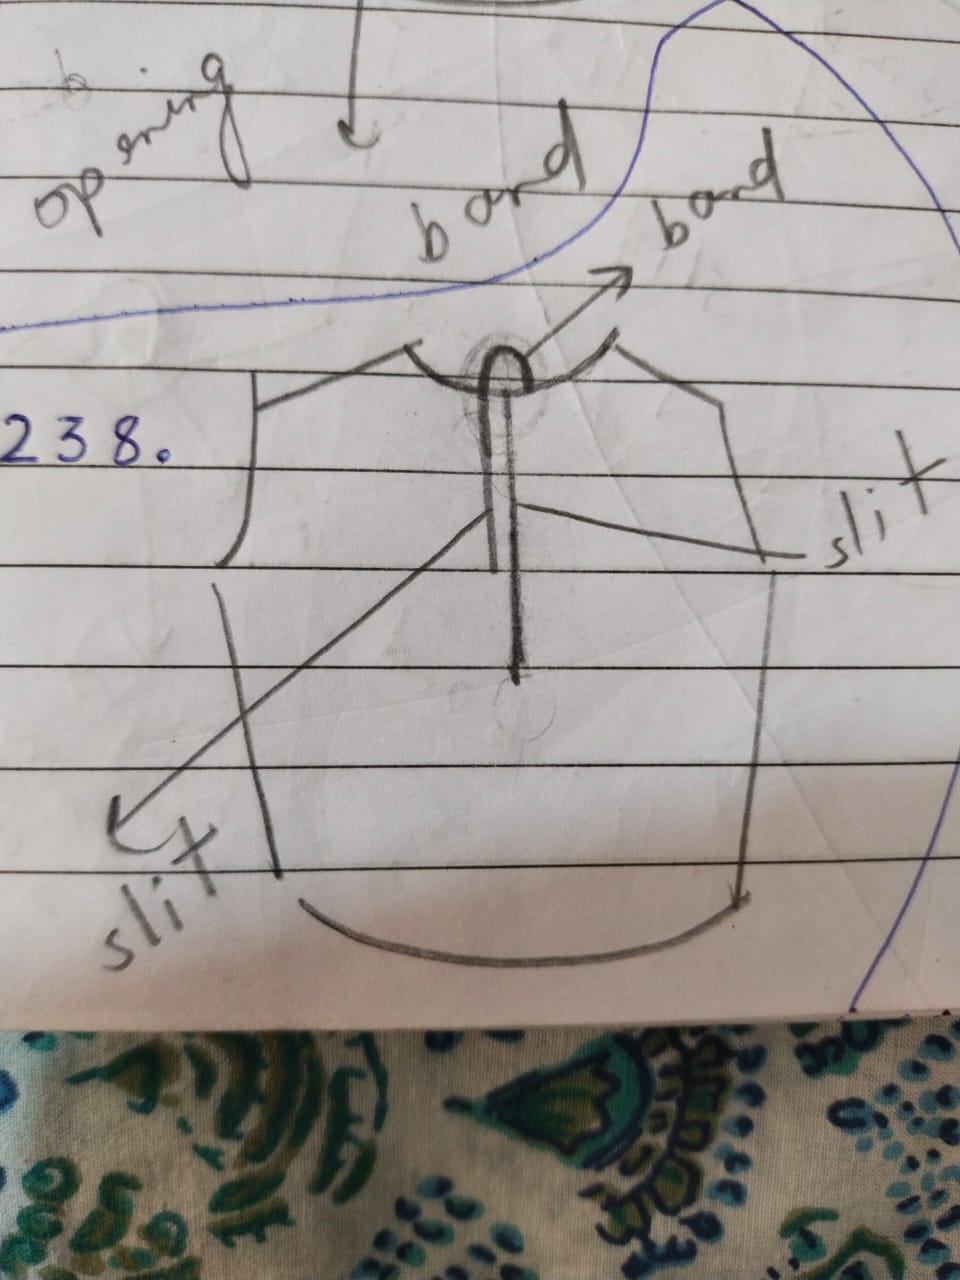 opening
band
band
238.
slit
slit